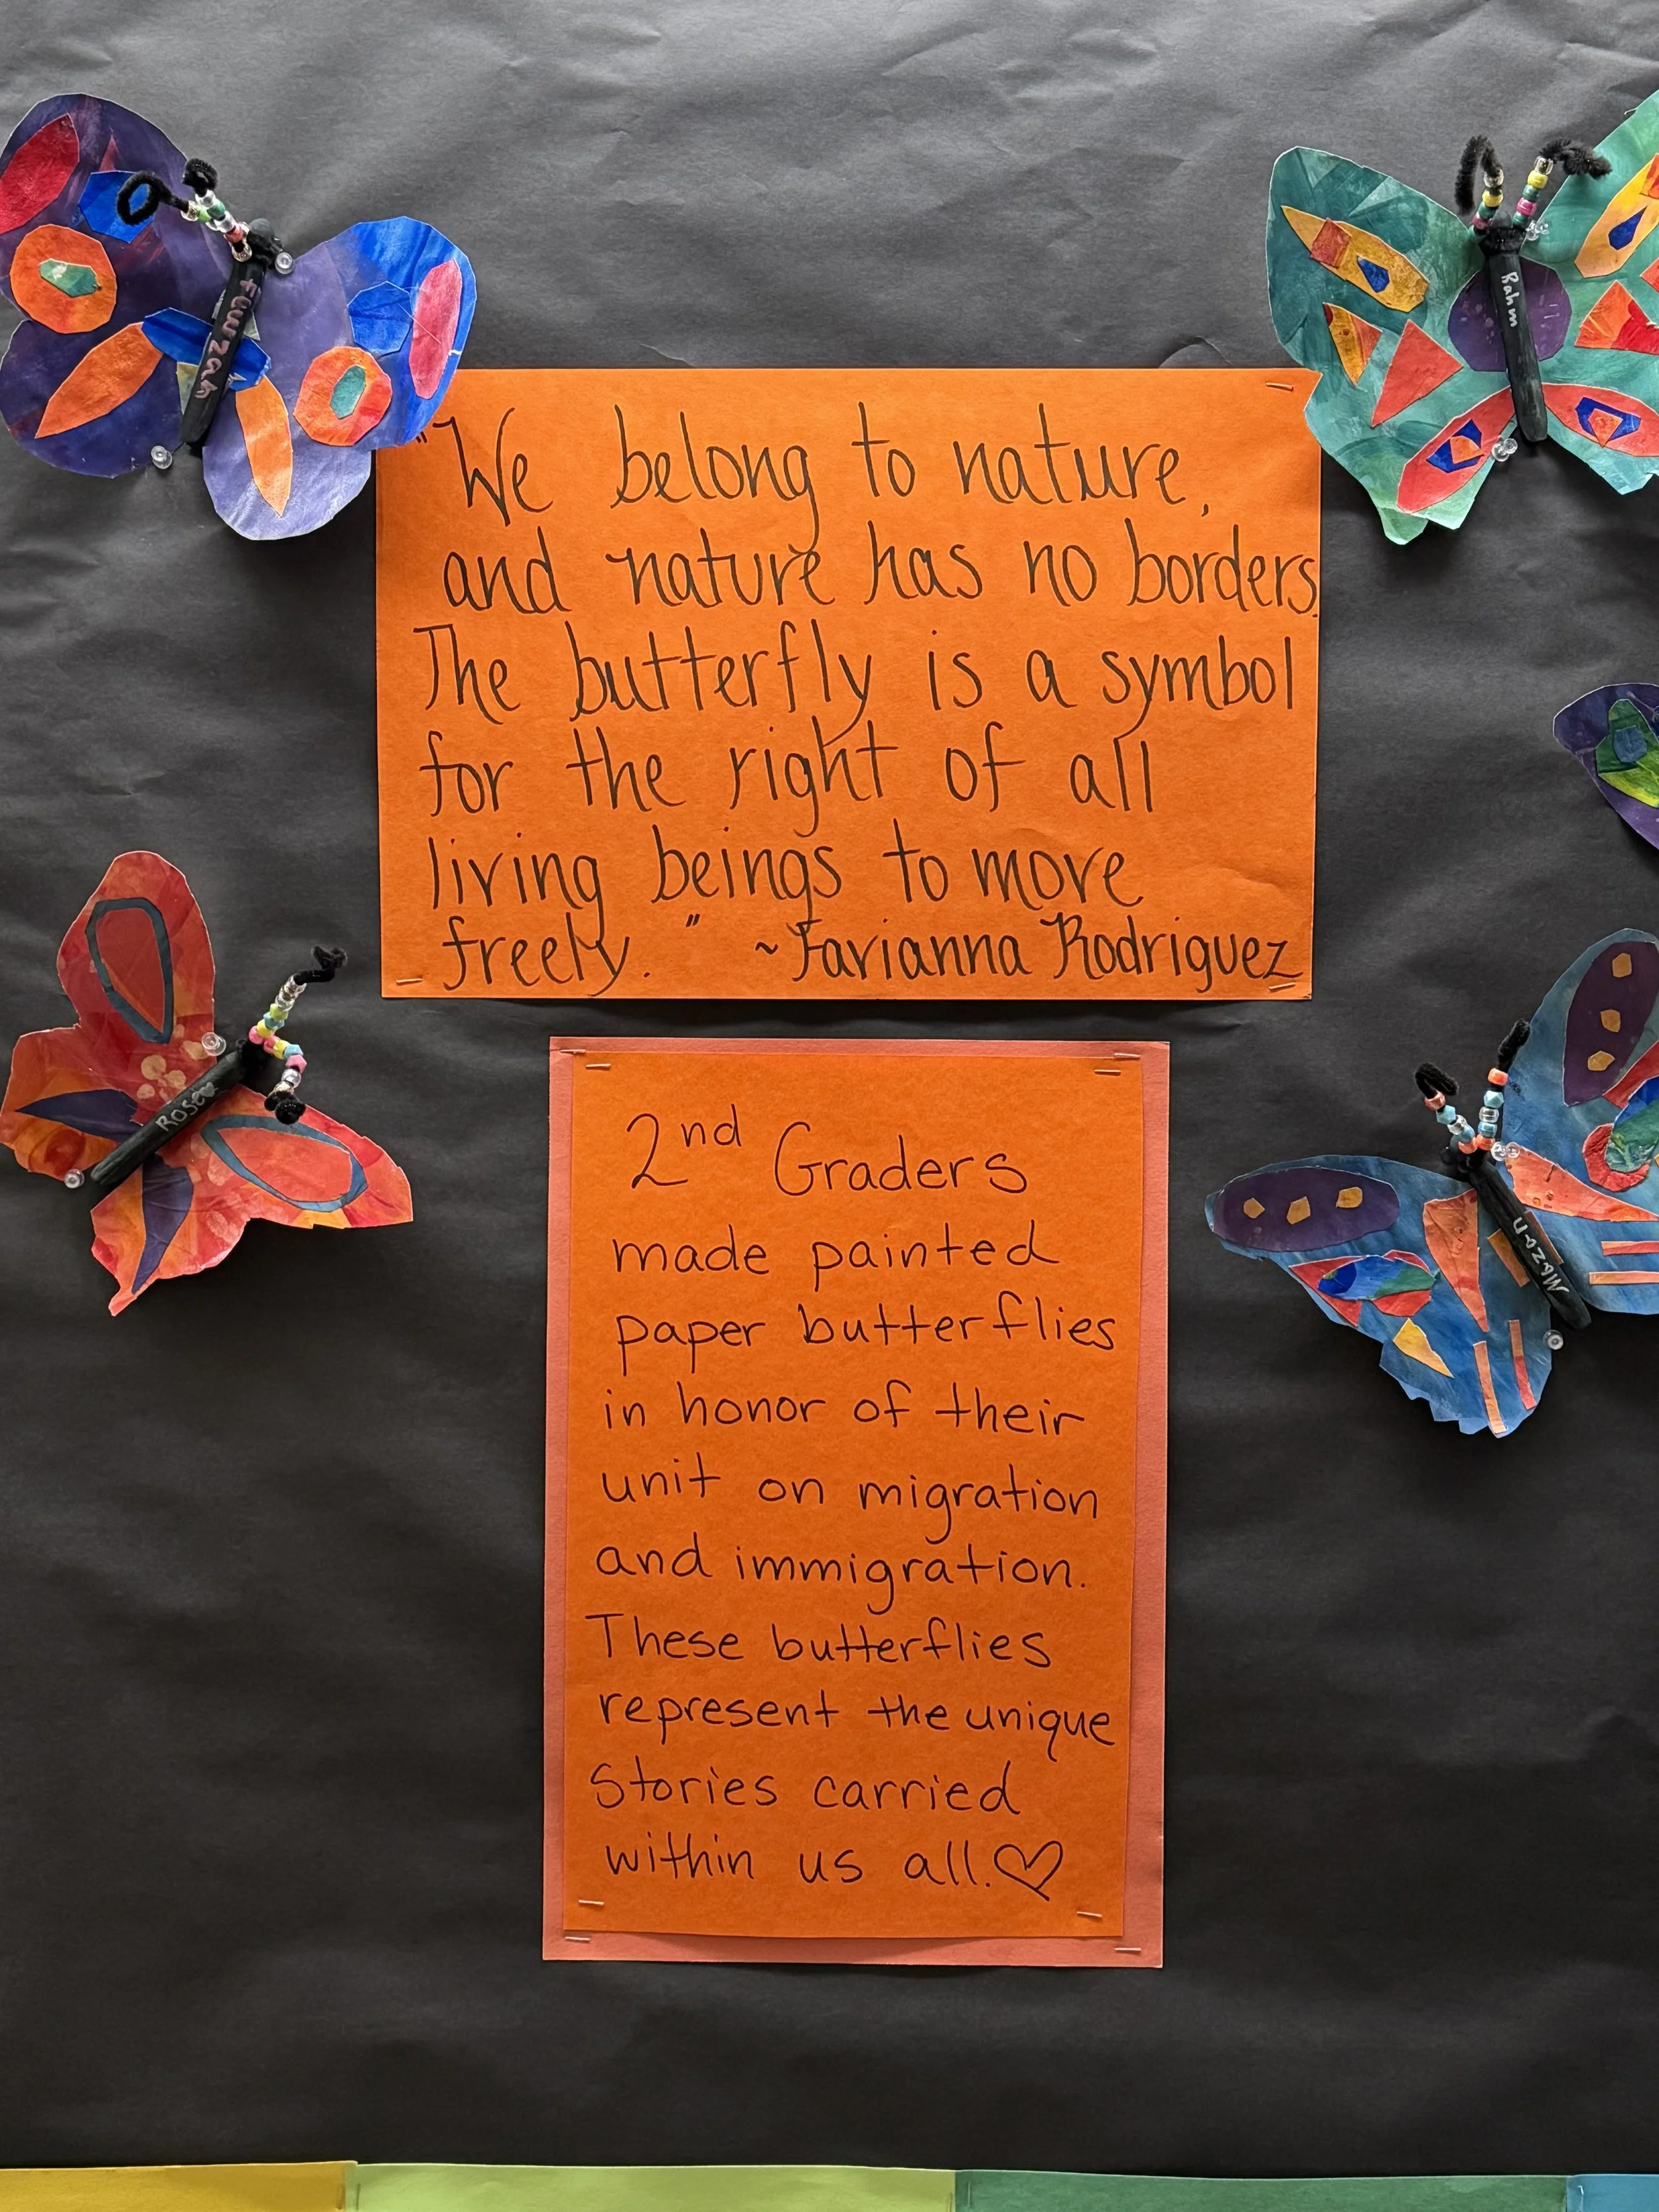 Fawzah
Rahm
"We belong to nature,
and nature has no borders.
The butterfly is a symbol
for the right of all
living beings to move
freely." ~Favianna Rodriguez
Mazan
2nd Graders
made painted
paper butterflies
in honor of their
unit on migration
and immigration.
These butterflies
represent the unique
Stories carried
within us all.♡